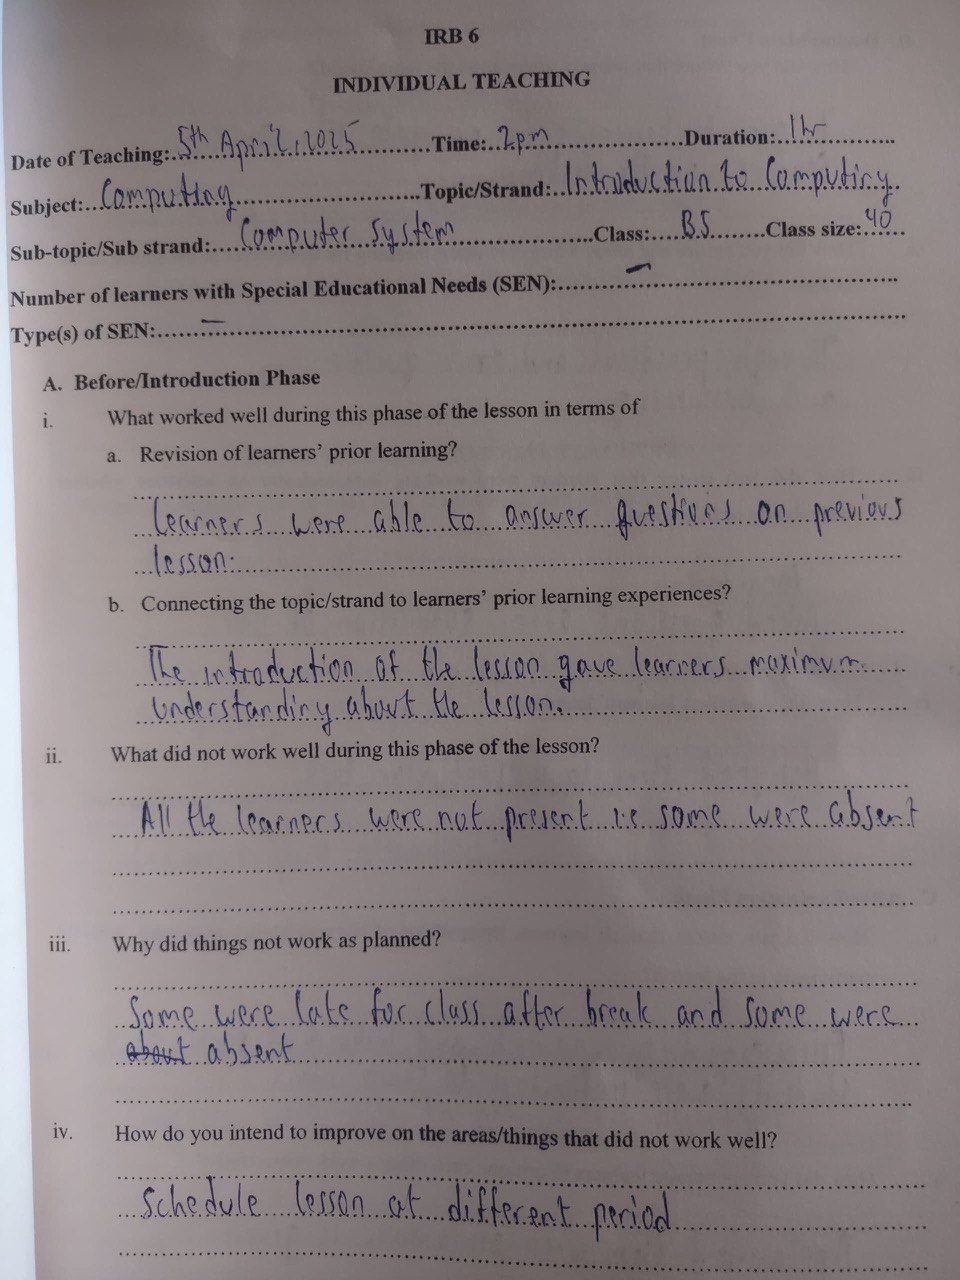 IRB 6
INDIVIDUAL TEACHING
Date of Teaching: 5th April, 2025 Time: 2pm Duration: 1hr
Subject: Computing Topic/Strand: Introduction to Computing
Sub-topic/Sub strand: Computer System Class: B.5 Class size: 40
Number of learners with Special Educational Needs (SEN): –
Type(s) of SEN: –
A. Before/Introduction Phase
i. What worked well during this phase of the lesson in terms of
a. Revision of learners’ prior learning?
Learners were able to answer questions on previous
lesson.
b. Connecting the topic/strand to learners’ prior learning experiences?
The introduction of the lesson gave learners maximum
understanding about the lesson.
ii. What did not work well during this phase of the lesson?
All the learners were not present i.e some were absent
iii. Why did things not work as planned?
Some were late for class after break and some were
about absent
iv. How do you intend to improve on the areas/things that did not work well?
Schedule lesson at different period